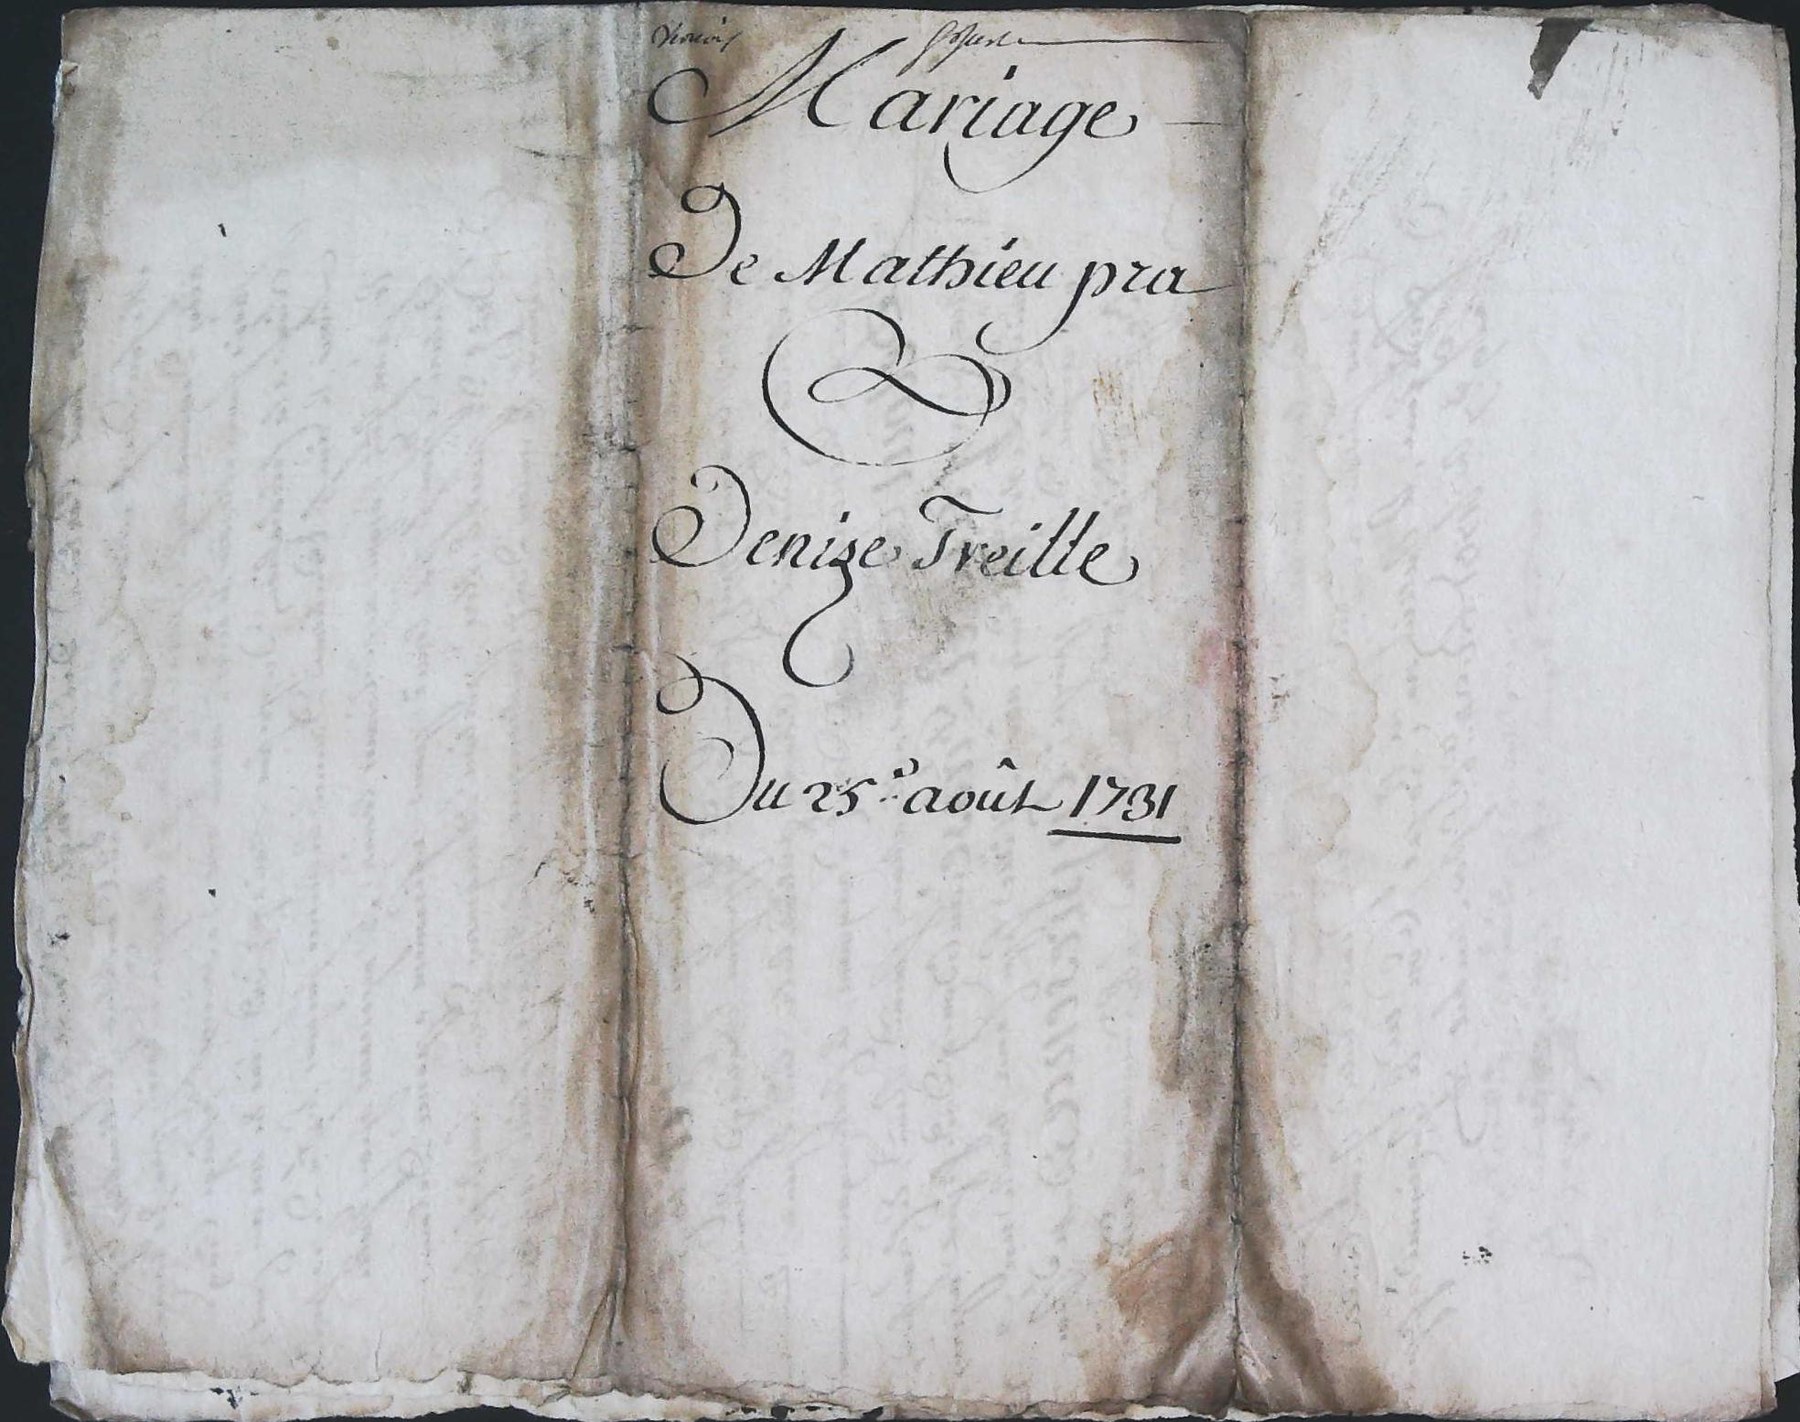 Mariage
De Mathieu pra
&
Denize Treille
Du 25.e août 1731